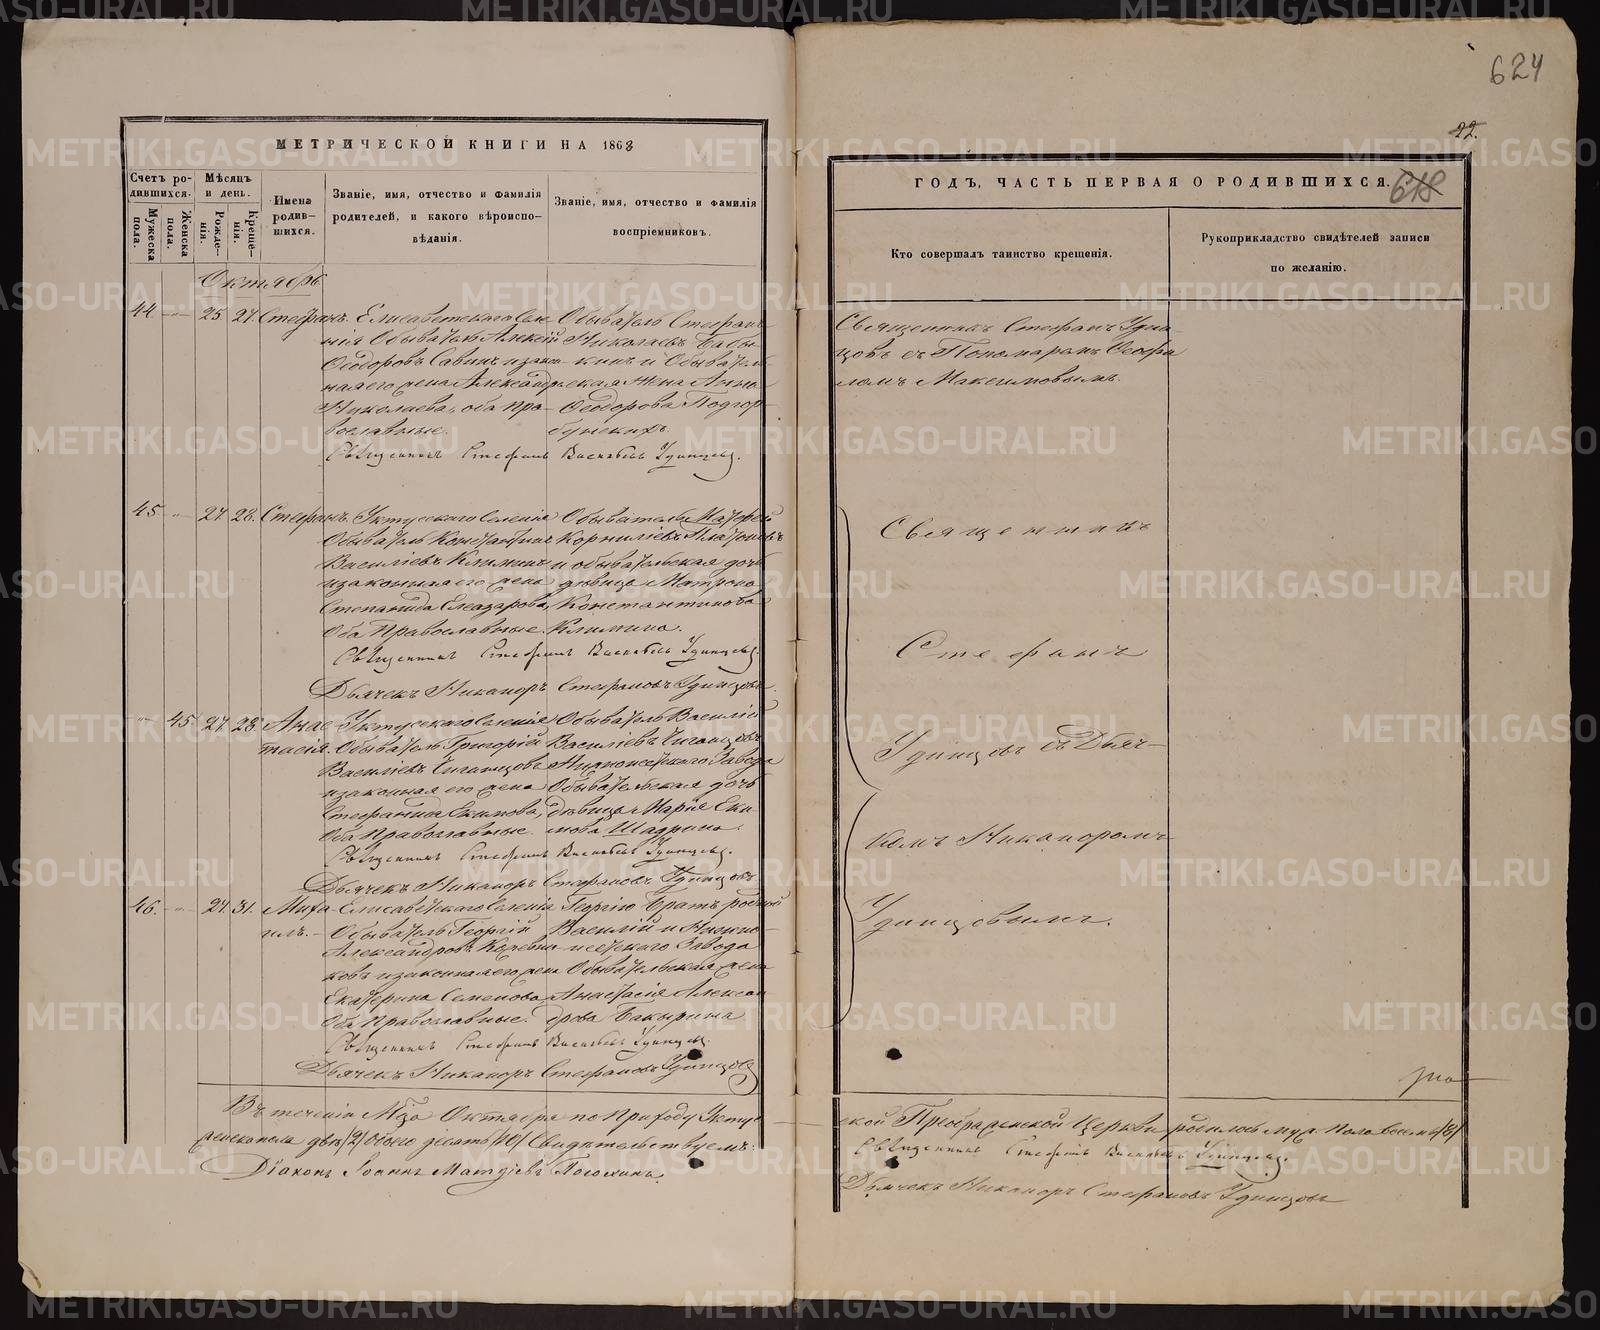 МЕТРИЧЕСКОЙ КНИГИ НА 1863
Счетъ ро-
дившихся.
Мужеска пола.
Женска пола.
Мѣсяцъ
и день.
Рожде-
нія.
Креще-
нія.
Имена
родив-
шихся.
Званіе, имя, отчество и фамилія
родителей, и какого вѣроиспо-
вѣданія.
Званіе, имя, отчество и фамилія
воспріемниковъ.
Октябрь
44 25. 27. Стефанъ.
Елисаветскаго Селе-
нія Обыватель Алексій
Ѳеодоровъ Савинъ и закон-
ная его жена Александра
Николаева, оба Пра-
вославные.
Обыватель Стефанъ
Николаевъ Бабы-
кинъ и Обыватель-
ская жена Анна
Ѳеодорова Подгор-
бунскихъ.
Священникъ Стефанъ Васильевъ Удинцевъ.
45 27. 28. Стефанъ.
Уктусскаго Селенія
Обыватель Константинъ
Василіевъ Климинъ
и законная его жена
Степанида Елеазарова,
Оба Православные.
Обыватель Матѳей
Корниліевъ Платоновъ
и обывательская дочь
дѣвица Матрона
Константинова
Климина.
Священникъ Стефанъ Васильевъ Удинцевъ.
Дьячекъ Никаноръ Стефановъ Удинцовъ.
45 27. 28. Анас-
тасія.
Уктусскаго Селенія
Обыватель Григорій
Василіевъ Чиганцовъ
и законная его жена
Стефанида Екимова,
Оба Православные.
Обыватель Василій
Василіевъ Чиганцовъ
Нижноисетскаго Завода
Обывательская дочь
дѣвица Марія Еки-
мова Шадрина.
Священникъ Стефанъ Васильевъ Удинцевъ.
Дьячекъ Никаноръ Стефановъ Удинцовъ
46. 27. 31. Миха-
илъ.
Елисаветскаго Селенія
Обыватель Георгій
Александровъ Кожевни-
ковъ и законная его жена
Екатерина Семенова
Оба Православные.
Георгію Братъ родной
Василій и Нижно-
исетскаго Завода
Обывательская жена
Анастасія Алексан-
дрова Бакырина
Священникъ Стефанъ Васильевъ Удинцевъ.
Дьячекъ Никаноръ Стефановъ Удинцовъ
Въ теченіи Октября по Приходу Укту-
женска пола двѣ /2/ Обоего десять /10/ Свидѣтельствуемъ:
Діаконъ Іоаннъ
624
22.
ГОДЪ, ЧАСТЬ ПЕРВАЯ О РОДИВШИХСЯ. 618
Кто совершалъ таинство крещенія.
Рукоприкладство свидѣтелей записи
по желанію.
Священникъ Стефанъ Удин-
цовъ съ Пономаремъ Ѳеофи-
ломъ Максимовымъ.
Священникъ
Стефанъ
Удинцовъ съ Дьяч-
комъ Никаноромъ
Удинцовымъ.
ской Преображенской Церкви родилось муж. пола восемь /8/
Священникъ Стефанъ Васильевъ Удинцевъ.
Дьячекъ Никаноръ Стефановъ Удинцовъ
METRIKI.GASO-URAL.RU